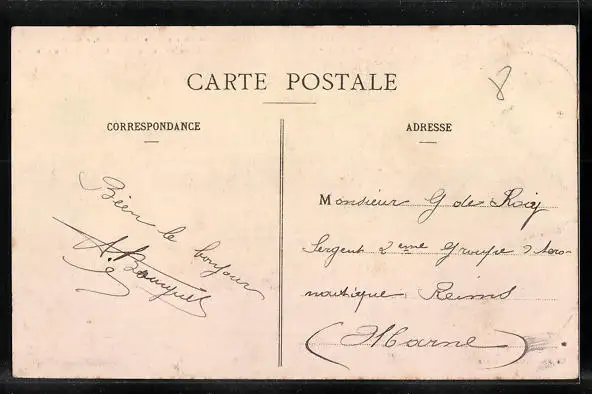 CARTE POSTALE
8
CORRESPONDANCE
Bien le bonjour
A. Bouquet
ADRESSE
Monsieur G de Rocy
Sergent 2eme Groupe d'Aéro-
nautique Reims
(Marne)